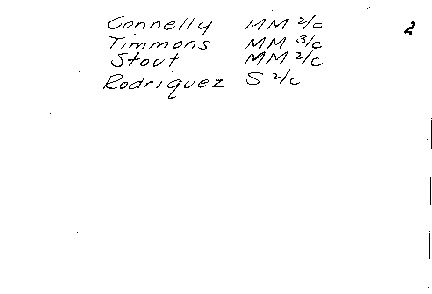 Connelly MM 2/c 2
Timmons MM 3/c
Stout MM 2/c
Rodriquez S 2/c